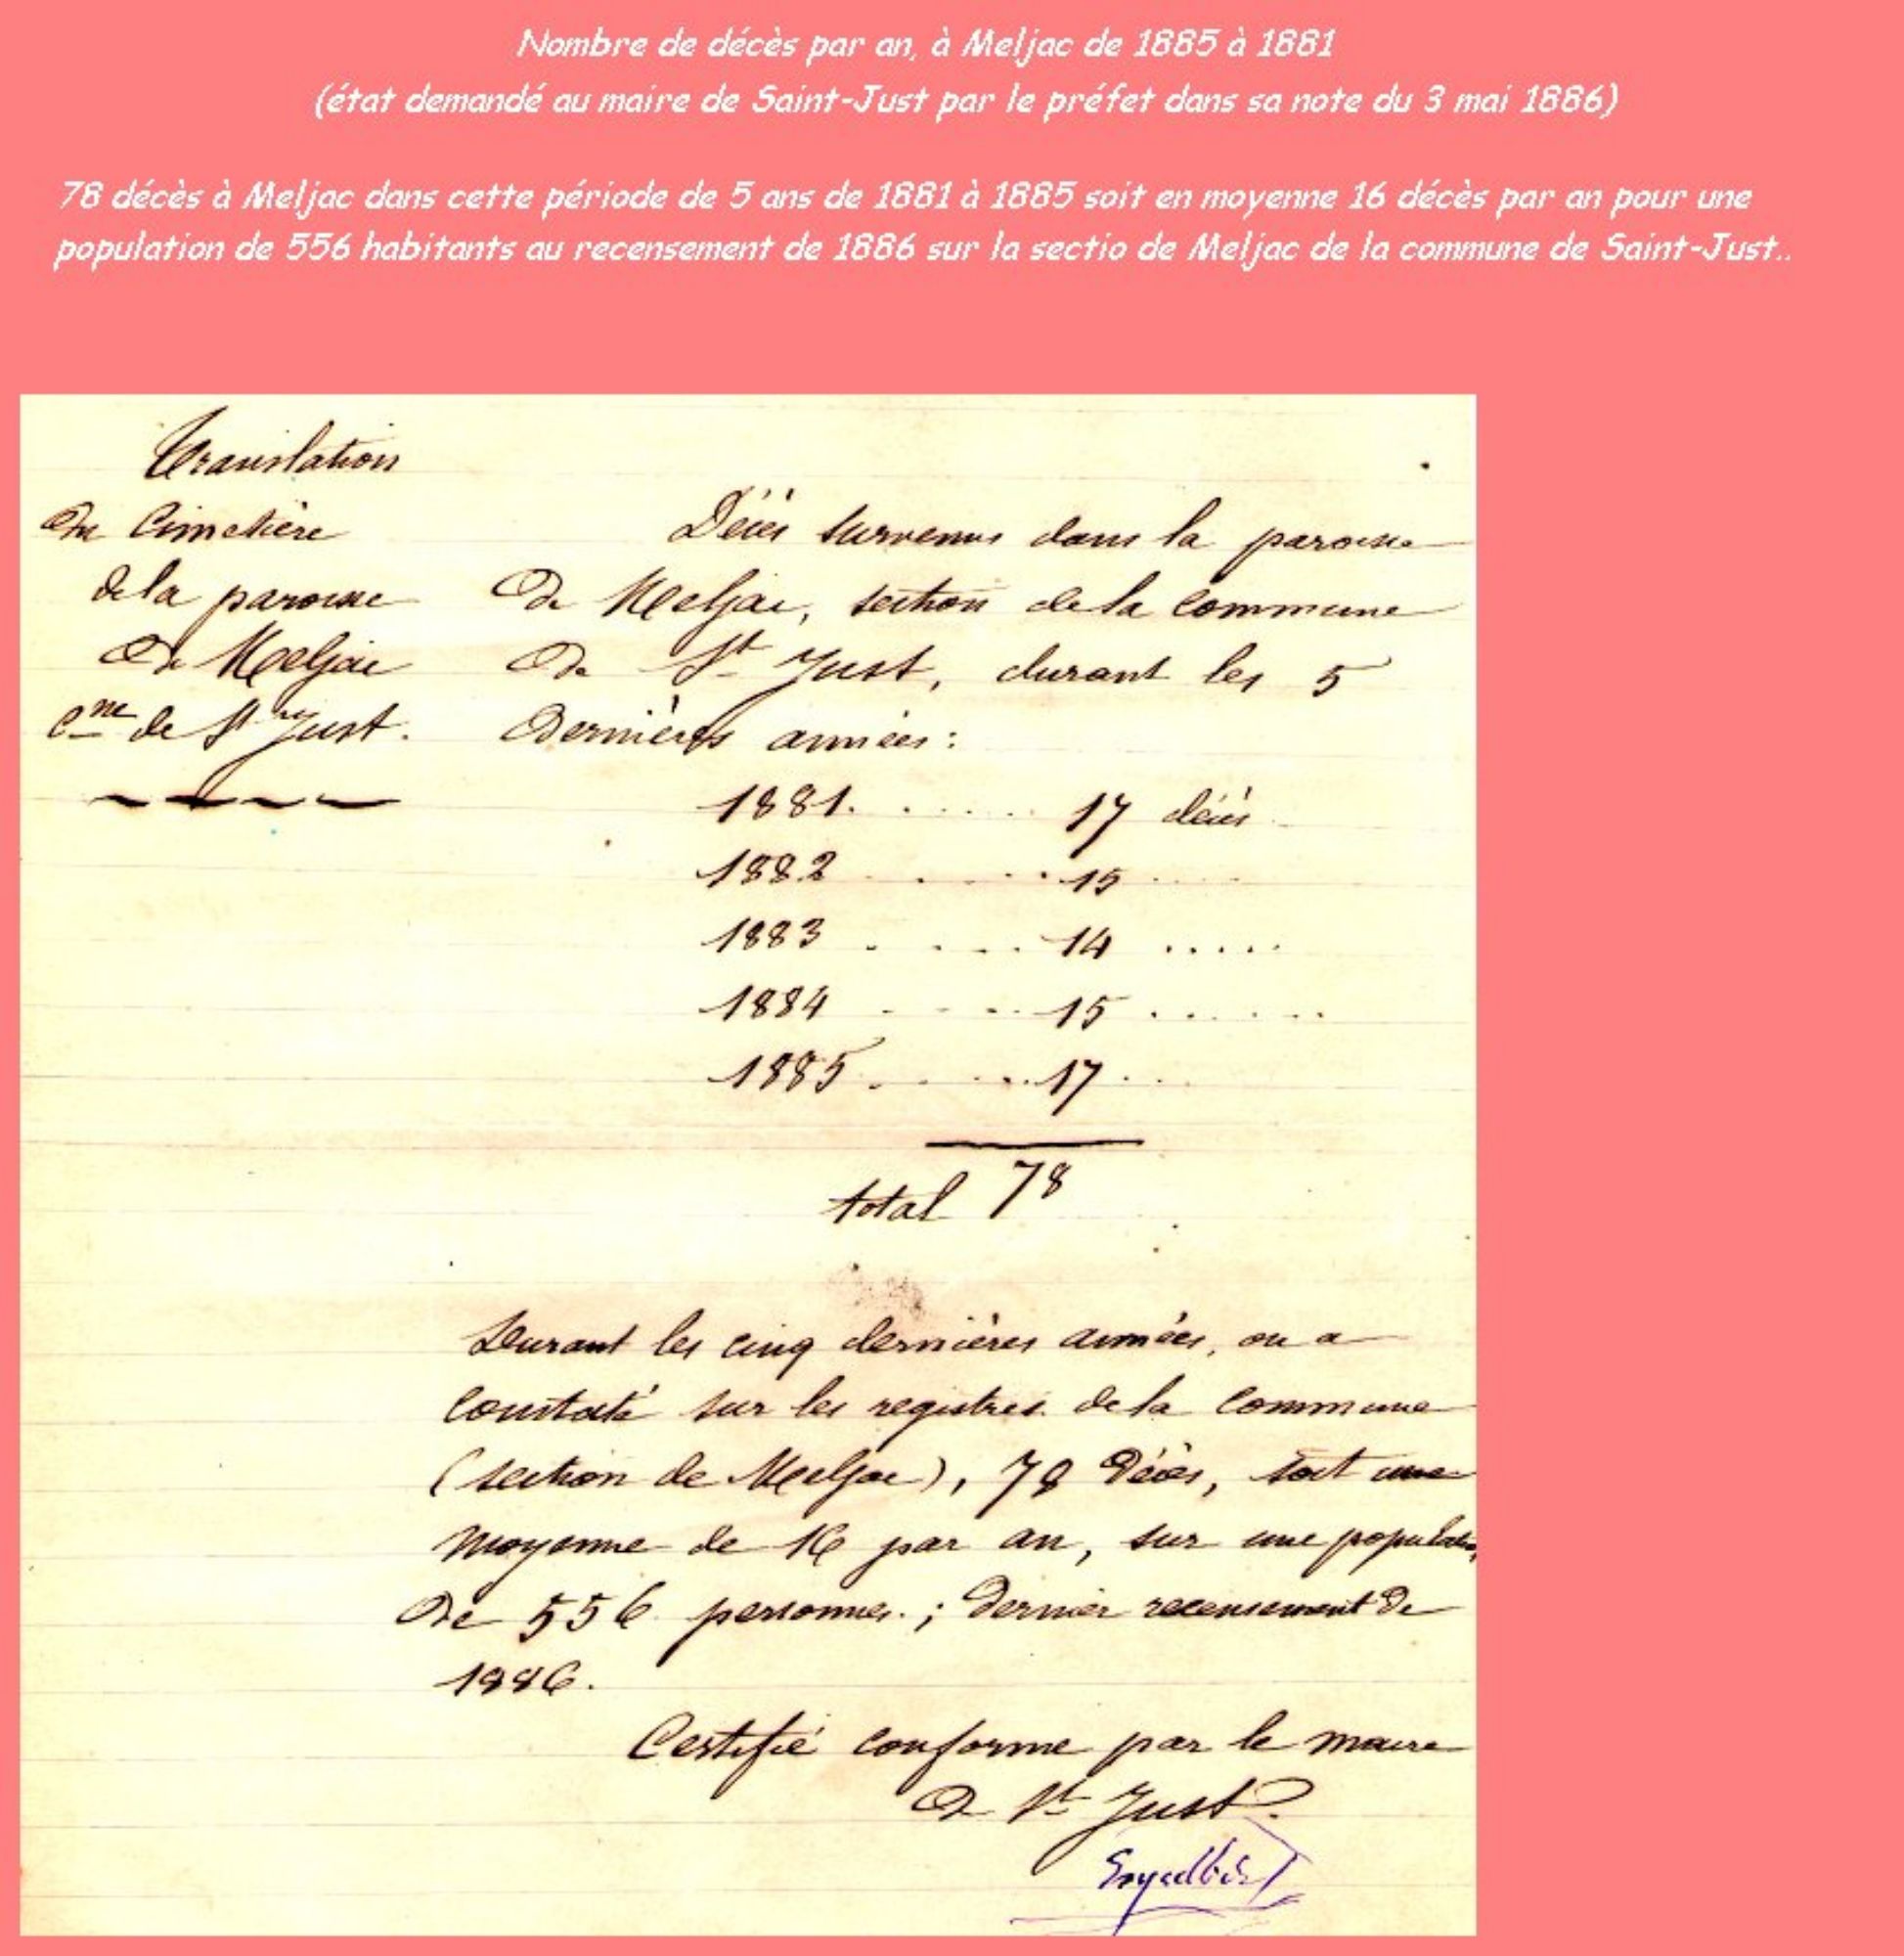 Nombre de décès par an, à Meljac de 1885 à 1881
(état demandé au maire de Saint-Just par le préfet dans sa note du 3 mai 1886)
78 décès à Meljac dans cette période de 5 ans de 1881 à 1885 soit en moyenne 16 décès par an pour une
population de 556 habitants au recensement de 1886 sur la sectio de Meljac de la commune de Saint-Just..
Translation
du Cimetière
de la paroisse
de Meljac
Cne de St Just.
Décès survenus dans la paroisse
de Meljac, section de la commune
de St Just, durant les 5
dernières années :
1881. . . . . . 17 décès
1882 . . . . . 15 . . . .
1883 . . . . 14 . . . . .
1884 . . . . 15 . . . . . .
1885 . . . . . 17 . . .
total 78
Durant les cinq dernières années, on a
constaté sur les registres de la commune
(section de Meljac), 78 décès, soit une
moyenne de 16 par an, sur une population
de 556 personnes. ; dernier recensement de
1886.
Certifié conforme par le maire
de St Just.